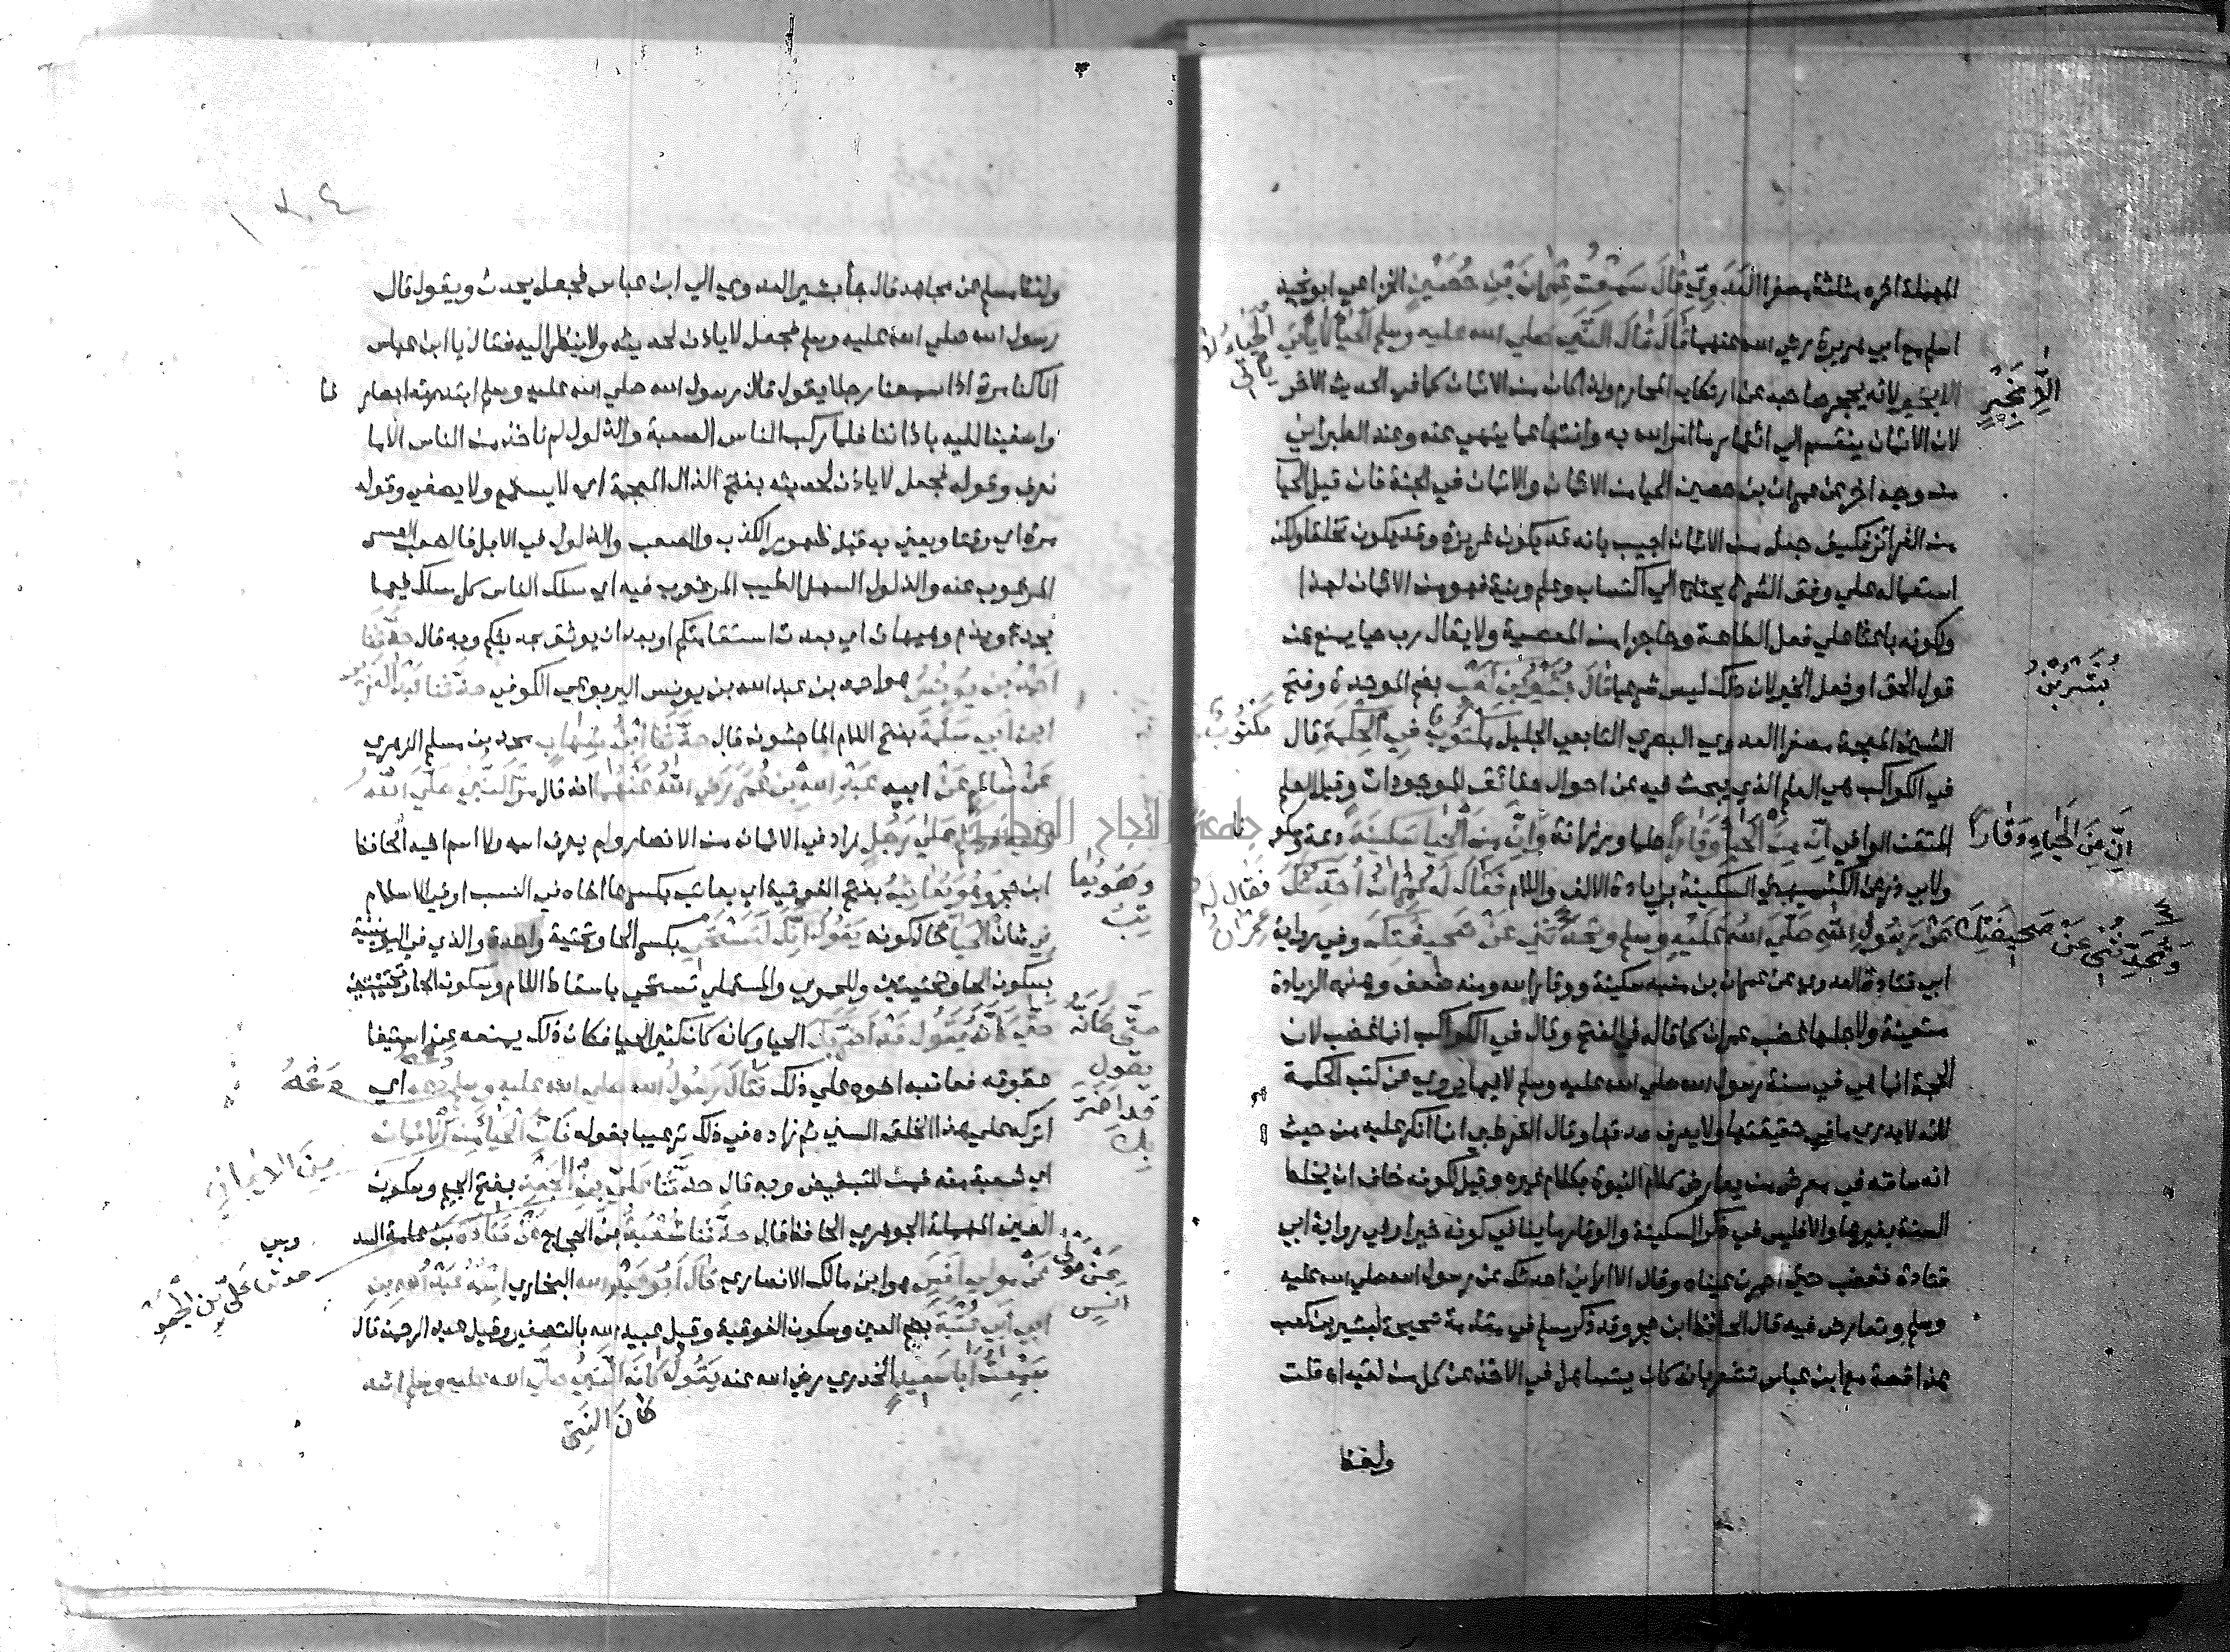 المهملة اخره مثلثة مصغرا العَدَوِيَّ قَالَ سَمِعْتُ عِمْرَانَ بْنَ حُصَيْنٍ الخزاعي ابو نجيد
اسلم مع ابي هريرة رضي الله عنهما قَالَ قَالَ النَّبِيُّ صلي الله عليه وسلم الْحَيَا لَا يَأْتِي
الْحَيَاءُ لَا يَأْتِي
الا بخير لانه يحجر صاحبه عن ارتكاب المحارم ولذا كان من الايمان كما في الحديث الاخر
اِلَّا بِخَيْرٍ
لان الايمان ينقسم الي ائتمار بما امر الله به وانتها عما ينهي عنه وعند الطبراني
من وجه اخر عن عمران بن حصين الحيا من الايمان والايمان في الجنة فان قيل الحيا
من الغرائز فكيف جعل من الايمان اجيب بانه قد يكون غريزة وقد يكون تخلقا ولكن
استعماله علي وفق الشرع يحتاج الي اكتساب وعلم ونية فهو من الايمان لهذا
ولكونه باعثا علي فعل الطاعة وحاجزا من المعصية ولا يقال رب حيا يمنع عن
قول الحق او فعل الخير لان ذلك ليس شرعيا فقال بُشَيْرُ بْنُ كَعْبٍ بضم الموحدة وفتح
بُشَيْرُ بْنُ
الشين المعجمة مصغرا العدوي البصري التابعي الجليل مَكْتُوبٌ فِي الْحِكْمَةِ قال
مَكْتُوبٌ
في الكواكب هي العلم الذي يبحث فيه عن احوال حقائق الموجودات وقيل العلم
المتقن الوافي اِنَّ مِنَ الْحَيَا وَقَارًا حلما ورزانة وَاِنَّ مِنَ الْحَيَا سَكِينَةً دعة وسكو نا
اِنَّ مِنَ الْحَيَاءِ وَقَارًا
ولابي ذر عن الكشميهني السكينة بزيادة الالف واللام فَقَالَ لَهُ عِمْرَانُ اُحَدِّثُكَ
فقال له عِمْرَانُ
عَنْ رَسُولِ اللهِ صَلَّي اللهُ عَلَيْهِ وسلم وَتُحَدِّثُنِي عَنْ صَحِيفَتِكَ وفي رواية
وَتُحَدِّثُنِي عَنْ صَحِيفَتِكَ
ابي قتادة العدوي عن عمران بن منبه سكينة ووقار الله ومنه ضعف وهذه الزيادة
متعينة ولاجلها غضب عمران كما قاله في الفتح وقال في الكواكب انما غضب لان
الحجة انما هي في سنة رسول الله صلي الله عليه وسلم لا فيما يروي عن كتب الحكمة
لانه لا يدري ما في حقيقتها ولا يعرف صدقها وقال القرطبي انما انكر عليه من حيث
انه ساقه في معرض من يعارض كلام النبوة بكلام غيره وقيل لكونه خاف ان يخلط
السنة بغيرها والا فليس في ذكر السكينة والوقار ما ينافي كونه خيرا وفي رواية ابي
قتادة فغضب حتي احمرت عيناه وقال الا اراني احدثك عن رسول الله صلي الله عليه
وسلم وتعارض فيه قال الحافظ ابن حجر وقد ذكر مسلم في مقدمة صحيحة لبشير بن كعب
هذا قصة مع ابن عباس تشعر بانه كان يتساهل في الاخذ عن كل من لقيه اه قلت
ولفظ
١٣٠٤
ولفظ مسلم عن مجاهد قال جأ بشير العدوي الي ابن عباس فجعل يحدث ويقول قال
رسول الله صلي الله عليه وسلم فجعل لا ياذن لحديثه ولا ينظر اليه فقال يا ابن عباس
انا كنا مرة اذا سمعنا رجلا يقول قال رسول الله صلي الله عليه وسلم ابتدرته ابصار نا
واصغينا اليه باذاننا فلما ركب الناس الصعبة والذلول لم ناخذ من الناس الا ما
نعرف وقوله فجعل لا ياذن لحديثه بفتح الذال المعجمة اي لا يستمع ولا يصغي وقوله
مرة اي وقتا ويعني به قبل ظهور الكذب والصعب والذلول في الابل فالصعب العسر
المرغوب عنه والذلول السهل الطيب المرغوب فيه اي سلك الناس كل مسلك فيما
يحمد ويذم وهيهات اي بعدت استقامتكم او بعد ان يوثق بحديثكم وبه قال حَدَّثَنَا
اَحْمَدُ بْنُ يُونُسَ هو احمد بن عبد الله بن يونس اليربوعي الكوفي حدَّثنا عَبْدُ الْعَزِيزِ
ابن ابي سَلَمَةَ بفتح اللام الماجشون قال حَدَّثَنَا ابْنُ شِهَابٍ محمد بن مسلم الزهري
عَنْ سَالِمٍ عَنْ ابيه عَبْدِ اللهِ بْنِ عُمَرَ رَضِيَ اللهُ عَنْهُمَا انه قال مَرَّ النَّبِيُّ صَلَّي اللهُ
عليه وسلم عَلَي رَجُلٍ زاد في الايمان من الانصار ولم يعرف اسمه ولا اسم اخيه الحافظ
ابن حجر وَهُوَ يُعَاتَبُ بفتح الفوقية اي يعاتب بكسرها اخاه في النسب او في الاسلام
وَهُوَ يُعَا تَبُ
في شان الْحَيَا حال كونه يَقُولُ اِنَّكَ لَتَسْتَحِي بكسر الحا وتحتية واحدة والذي في اليونينية
بسكون الحا وتحتيتين وللحموي والمستملي تستحي باسقاط اللام وسكون الحا وتحتيتين
حَتَّي كَأَنَّهُ يَقُولُ قَدْ اَضَرَّ بِكَ الحيا وكانه كان كثير الحيا فكان ذلك يمنعه عن استيفا
حتَّى كَأَنَّهُ
يقول
قَد اَضَرَّ
بِكَ
حقوقه فعاتبه اخوه علي ذلك فَقَالَ رَسُولُ الله صلي الله عليه وسلم دعه اي
دَعْهُ
اتركه علي هذا الخلق السني ثم زاده في ذلك ترغيبا بقوله فَاِنَّ الْحَيَا مِنَ الْاِيمَانِ
مِنَ الْاِيمَانِ
اي شعبة منه فمن للتبعيض وبه قال حدَّثَنَا عَلِيُّ بْنُ الْجَعْدِ بفتح الجيم وسكون
وبي
حدثنا عَلِيُّ بْنُ الْجَعْدِ
العين المهملة الجوهري الحافظ قال حدَّثنا شُعْبَةُ بْنُ الحجاج عَنْ قَتَادَةَ بْنِ دعامة السد
عَنْ مولي اَنَسٍ هو ابن مالك الانصاري قَالَ اَبُو عَبْدِ الله البخاري اسْمُهُ عَبْدُ اللهِ بن
عَنْ مَوْلَى
انسٍ
ابي اَبي عُتْبَةَ بضم العين وسكون الفوقية وقيل عبيد الله بالتصغير وقيل عبد الرحمن قال
سَمِعْتُ اَبَا سَعِيدٍ الخدري رضي الله عنه يَقُولُ كَانَ النَّبِيُّ صَلَّي الله عليه وسلم اشد
كَانَ النَّبِيّ
جامعة النجاح الوطنية